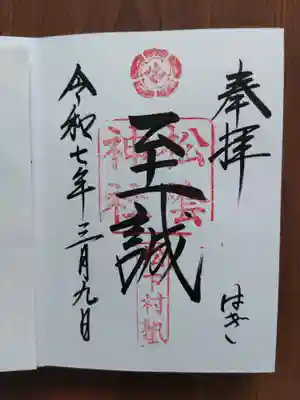 奉拝
はぎ
松陰
神社
至誠
松下村塾
令和七年三月九日